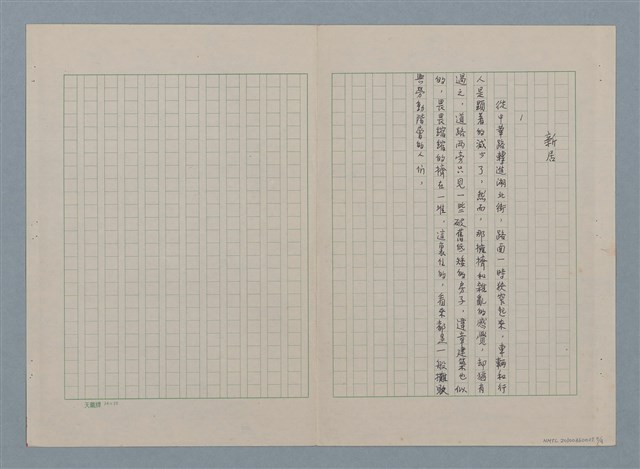 新居
1
從中華路轉進湖北街,路面一時狹窄起來,車輛和行
人是顯著的減少了,然而,那擁擠和雜亂的感覺,却猶有
過之。道路兩旁只見一些破舊低矮的房子,違章建築也似
的,畏畏縮縮的擠在一堆。這裏住的,看來都是一般攤販
與勞動階層的人們。
天龍牌